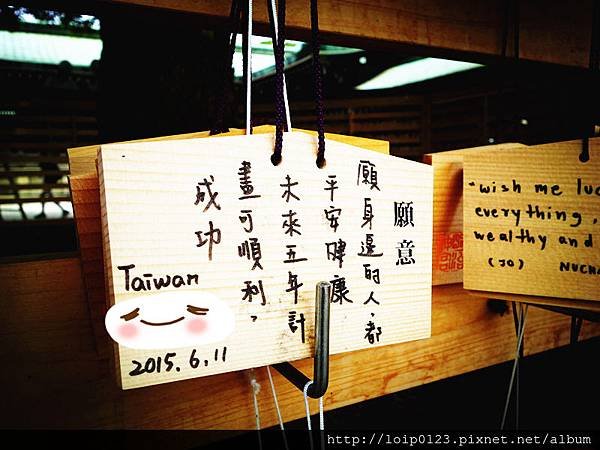 願意
願身邊的人，都
平安健康
未來五年計
畫可順利，
成功
Taiwan
2015.6.11
wish me luc
everything,
wealthy and
(JO) NUCHA
http://loip0123.pixnet.net/album